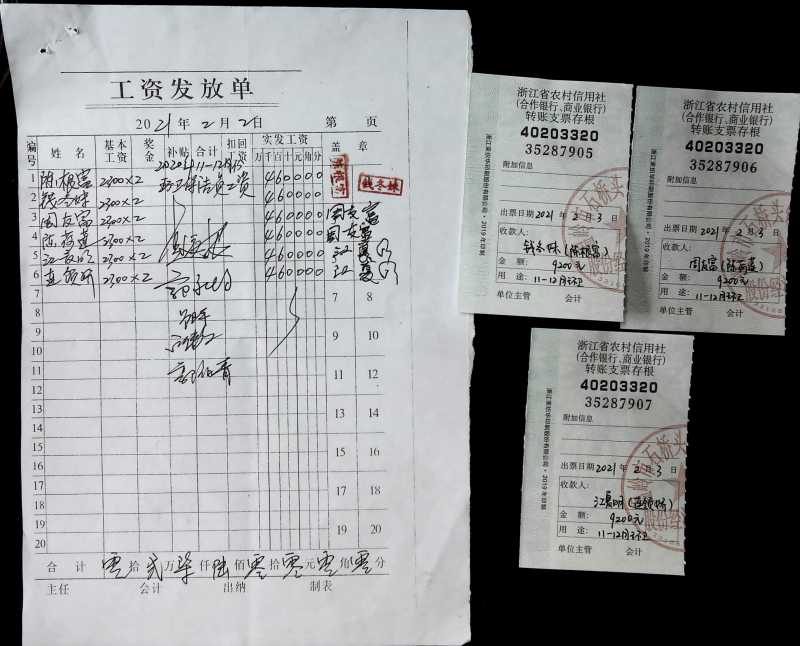 工资发放单
2021年2月2日 第 页
编号 姓名 基本工资 奖金 补贴 合计 扣回工资 实发工资 盖章
万 千 百 十 元 角 分
2020年11-12月份
环卫保洁员工资
1 陈根富 2300×2 460000
2 钱冬妹 2300×2 460000 钱冬妹
3 周友富 2300×2 460000 周友富
4 陈荷莲 2300×2 460000 周友富
5 江夏明 2300×2 460000 江夏明
6 2300×2 460000 江夏明
7 7 8
8
9 9 10
10
11 11 12
12
13 13 14
14
15 15 16
16
17 17 18
18
19 19 20
20
合计 零拾贰万柒仟陆佰零拾零元零角零分
主任 会计 出纳 制表
浙江省农村信用社
(合作银行、商业银行)
转账支票存根
40203320
35287905
附加信息
出票日期2021年2月3日
收款人:
钱冬妹(陈根富)
金额: 9200元
用途: 11-12月环卫
单位主管 会计
浙江省农村信用社
(合作银行、商业银行)
转账支票存根
40203320
35287906
附加信息
出票日期2021年2月3日
收款人:
周友富(陈荷莲)
金额: 9200元
用途: 11-12月环卫
单位主管 会计
浙江省农村信用社
(合作银行、商业银行)
转账支票存根
40203320
35287907
附加信息
出票日期2021年2月3日
收款人:
江夏明
金额: 9200元
用途: 11-12月环卫
单位主管 会计